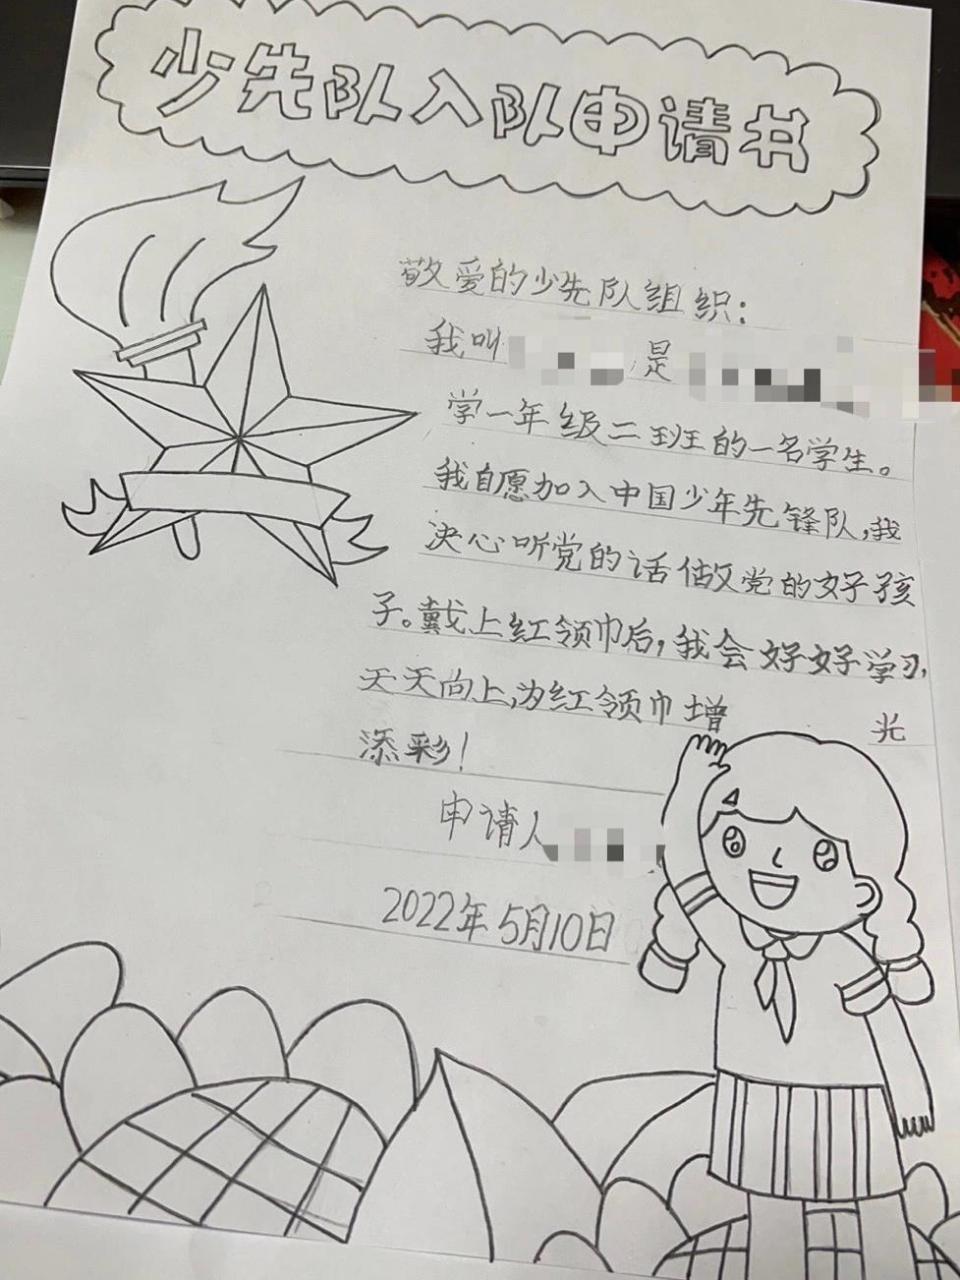 少先队入队申请书
敬爱的少先队组织：
我叫 是
学一年级二班的一名学生。
我自愿加入中国少年先锋队，我
决心听党的话做党的好孩
子。戴上红领巾后，我会好好学习，
天天向上，为红领巾增 光
添彩！
申请人
2022年5月10日